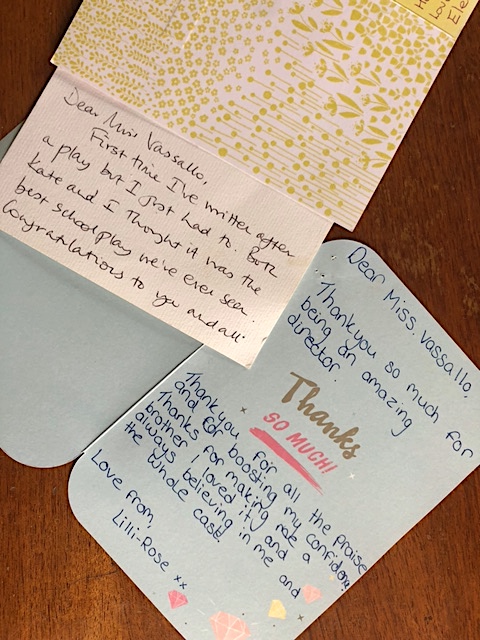 Dear Mrs Vassallo,
First time I've written after
a play but I just had to. Both
Kate and I thought it was the
best school play we've ever seen.
Congratulations to you and all
Dear Miss. Vassallo,
Thankyou so much for
being an amazing
director.
Thanks
SO MUCH!
Thankyou for all the praise
and for boosting my confidence.
Thanks for making me a
brother, I loved it, and
always believing in me and
the whole cast!
Love from,
Lilli-Rose xx